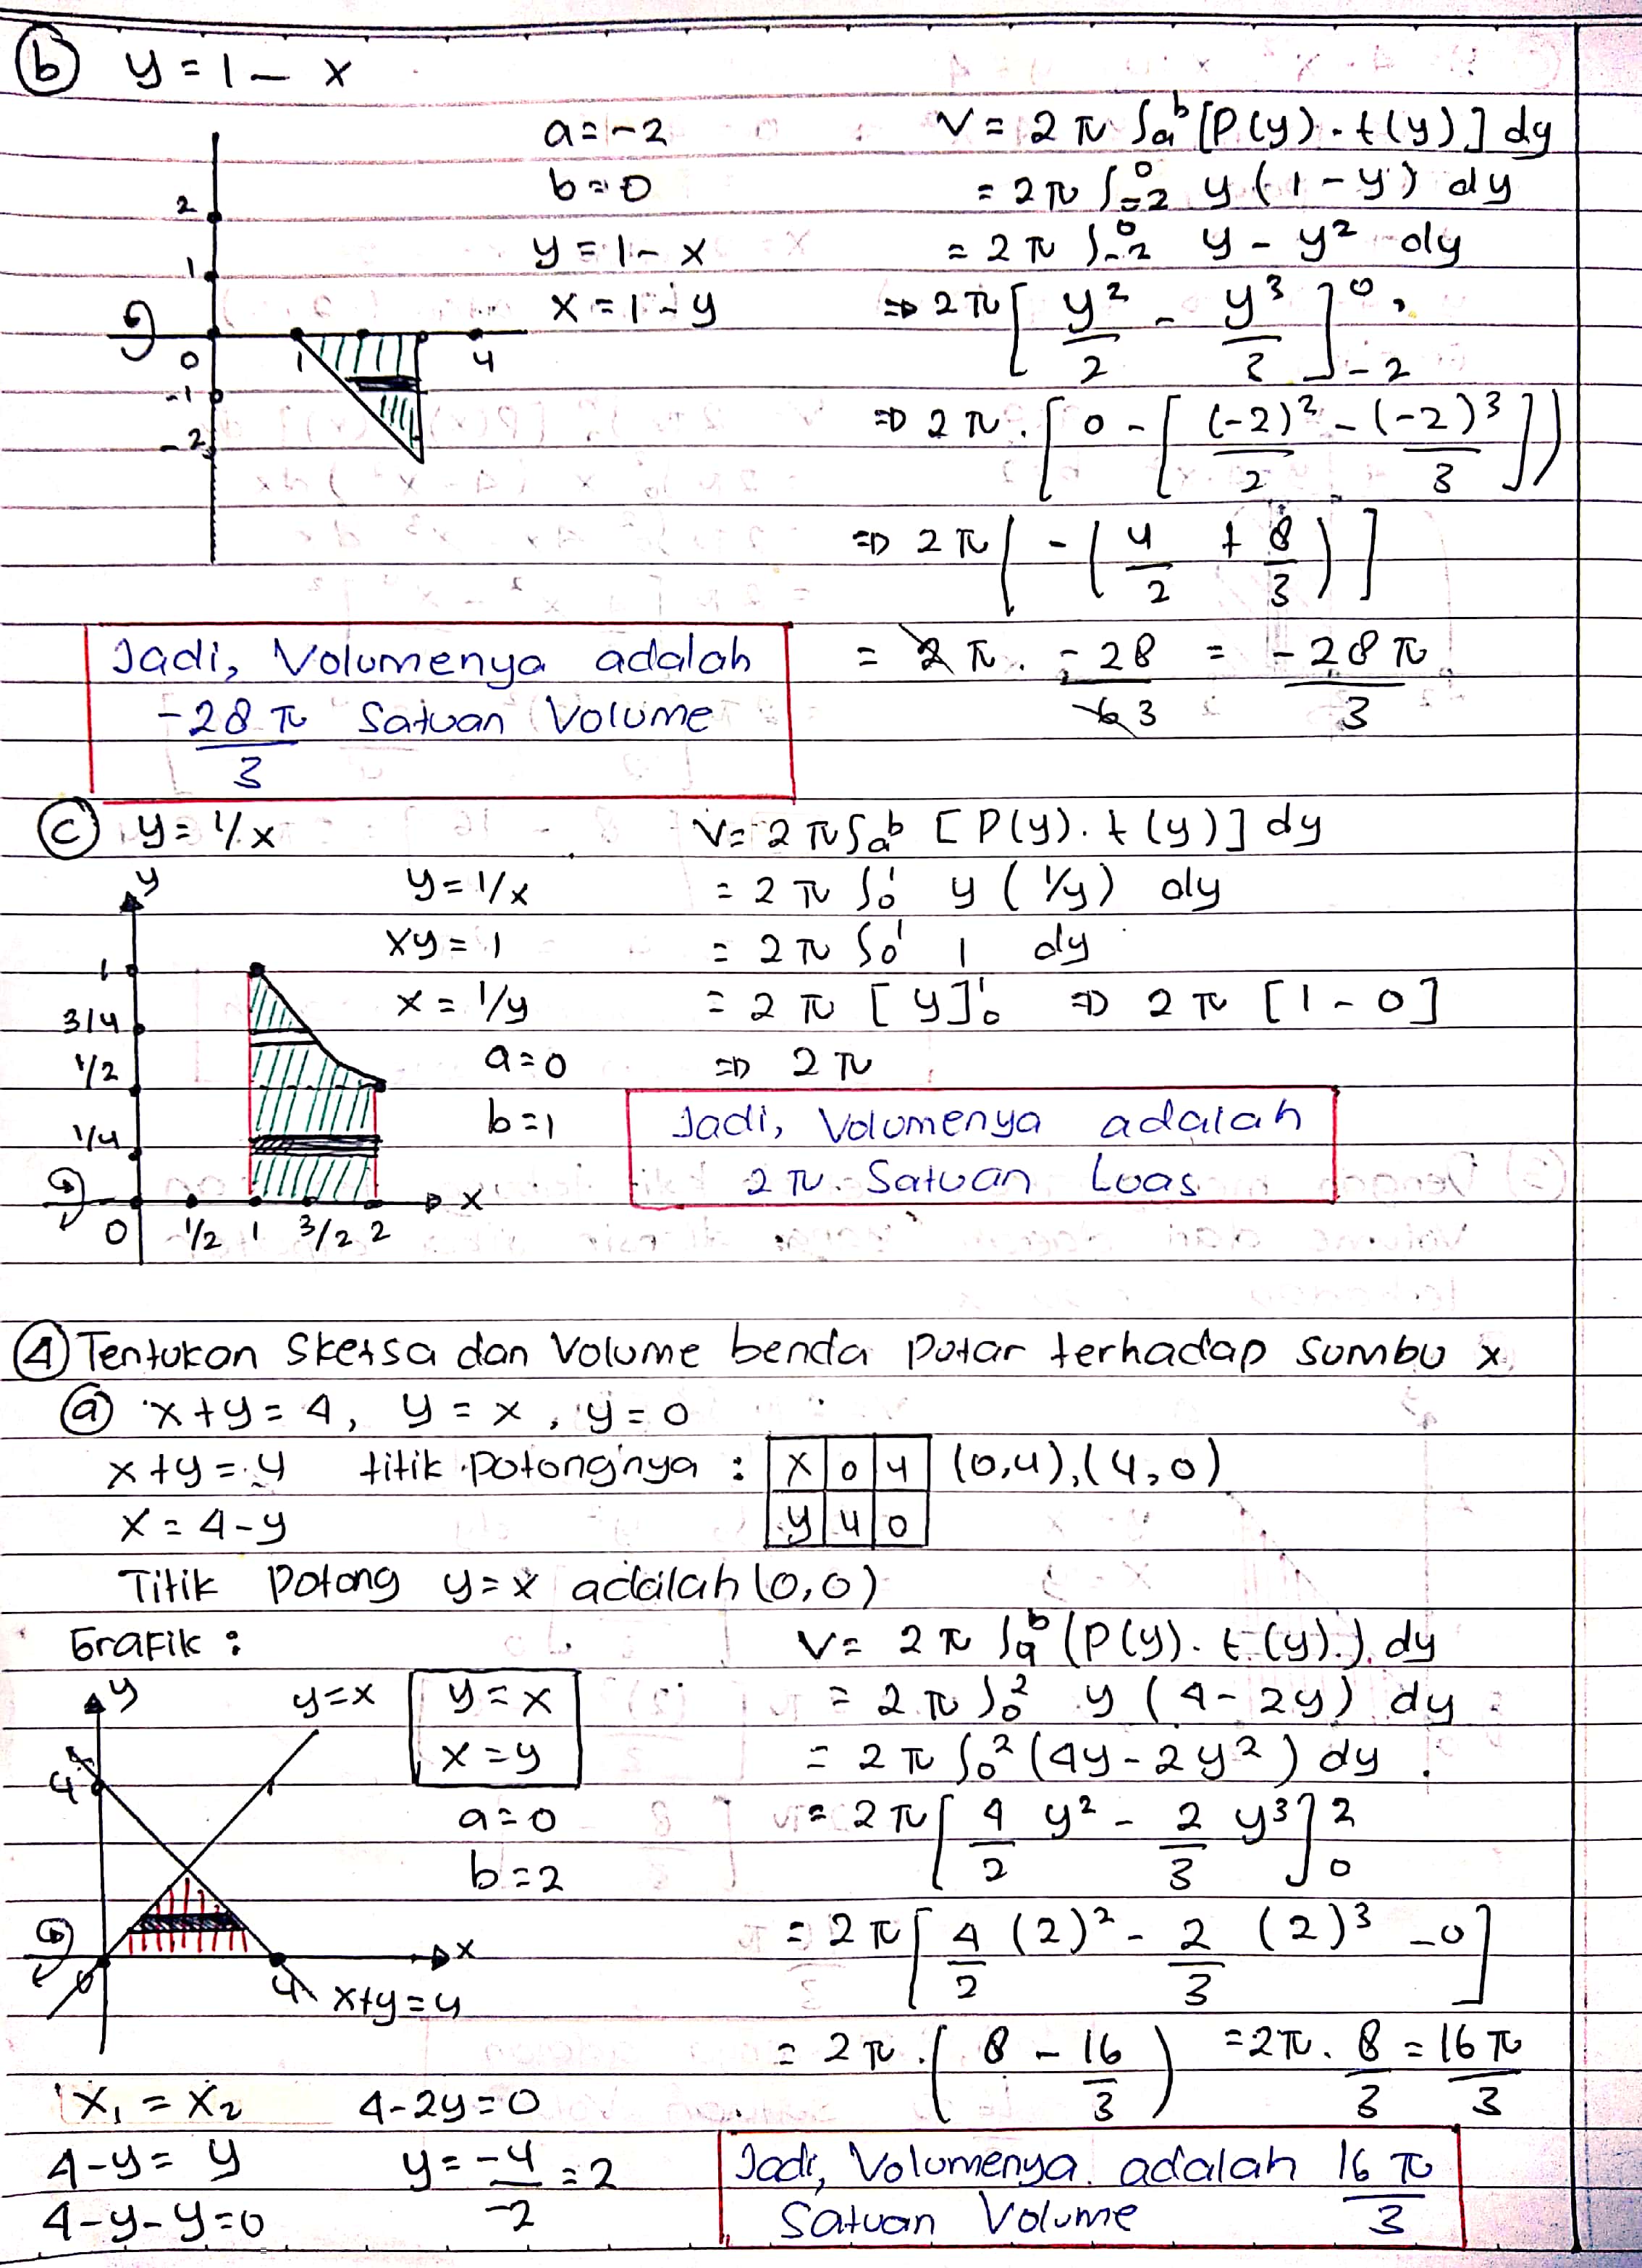 (b) y = 1 - x
a = -2
b = 0
y = 1 - x
x = 1 - y
2
1
0
1
4
-1
-2
V = 2π ∫ₐᵇ [P(y) . t(y)] dy
= 2π ∫₋₂⁰ y (1 - y) dy
= 2π ∫₋₂⁰ y - y² dy
⇒ 2π [ y²/2 - y³/3 ]⁰₋₂
⇒ 2π . [ 0 - [ (-2)²/2 - (-2)³/3 ] )
⇒ 2π [ - ( 4/2 + 8/3 ) ]
= 2π . -28/6 3 = -28π/3
Jadi, Volumenya adalah
-28π/3 Satuan Volume
(c) y = 1/x
y
y = 1/x
xy = 1
x = 1/y
a = 0
b = 1
1
3/4
1/2
1/4
0 1/2 1 3/2 2
x
V = 2π ∫ₐᵇ [P(y) . t(y)] dy
= 2π ∫₀¹ y (1/y) dy
= 2π ∫₀¹ 1 dy
= 2π [y]¹₀ ⇒ 2π [1 - 0]
⇒ 2π
Jadi, Volumenya adalah
2π Satuan Luas
(4) Tentukan Sketsa dan Volume benda putar terhadap sumbu x
(a) x + y = 4, y = x, y = 0
x + y = 4 titik potongnya : x 0 4 (0,4), (4,0)
x = 4 - y y 4 0
Titik Potong y = x adalah (0,0)
Grafik :
y
y = x
y = x
x = y
a = 0
b = 2
4
0
4
x
x+y=4
V = 2π ∫ₐᵇ (P(y) . t(y)) dy
= 2π ∫₀² y (4 - 2y) dy
= 2π ∫₀² (4y - 2y²) dy
= 2π [ 4/2 y² - 2/3 y³ ]²₀
= 2π [ 4/2 (2)² - 2/3 (2)³ - 0 ]
= 2π . ( 8 - 16/3 ) = 2π . 8/3 = 16π/3
x₁ = x₂ 4 - 2y = 0
4 - y = y y = -4/-2 = 2
4 - y - y = 0
Jadi, Volumenya adalah 16π/3
Satuan Volume